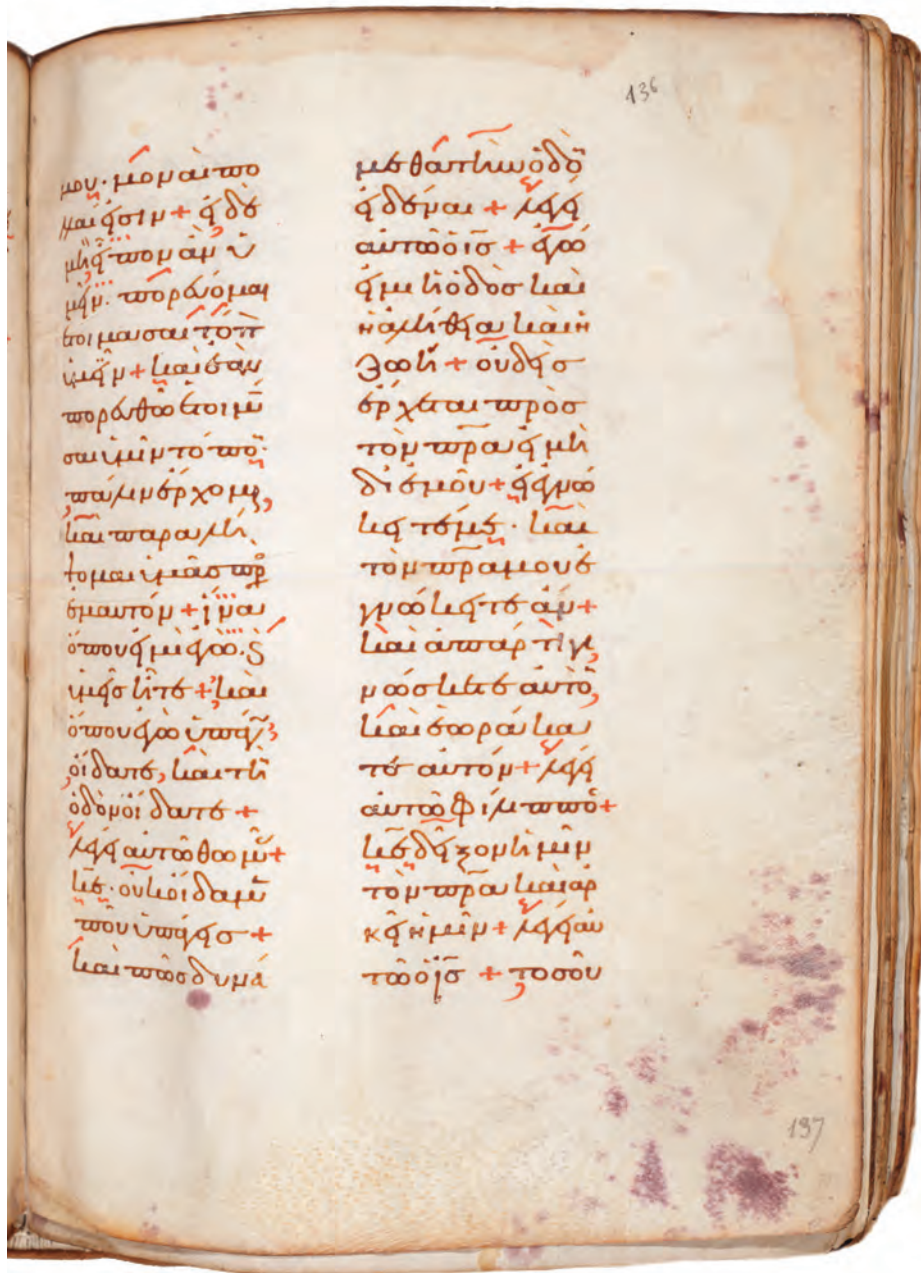 136
μου· μοναὶ πο
λαι εἰσιν + εἰ δὲ
μὴ εἶπον ἂν ὑ
μῖν· πορεύομαι
ἑτοιμασαι τόπ
ὑμῖν + καὶ ἐὰν
πορευθῶ ἑτοιμ
σαι ὑμῖν τόπο
πάλιν ἔρχομαι,
καὶ παραλή
ψομαι ὑμᾶς πρ
ἐμαυτόν + ἵνα
ὅπου εἰμὶ ἐγὼ· ϛ
ὑμεῖς ἦτε + καὶ
ὅπου ἐγὼ ὑπάγ
οἴδατε, καὶ τὴ
ὁδὸν οἴδατε +
λέγει αὐτῶ θωμ +
κε· οὐκ οἴδαμε
ποῦ ὑπάγεις +
καὶ πῶς δυνά
μεθα τὴν ὁδὸ
εἰδέναι + λέγει
αὐτῶ ὁ ις + ἐγώ
εἰμι ἡ ὁδὸς καὶ
ἡ ἀλήθεια καὶ ἡ
ζωὴ + οὐδεὶς
ἔρχεται πρὸς
τὸν πρα εἰ μὴ
δι ἐμοῦ + εἰ ἐγνώ
κειτέ με· καὶ
τὸν πρα μου ἐ
γνώκειτε ἄν +
καὶ ἀπάρτι γι
νώσκετε αὐτὸ,
καὶ ἑωράκα
τε αὐτόν + λέγει
αὐτῶ φίλιππο +
κε δεῖξον ἡμῖν
τὸν πρα καὶ ἀρ
κεῖ ἡμῖν + λέγει αὐ
τῶ ὁ ις + τοσοῦ
137